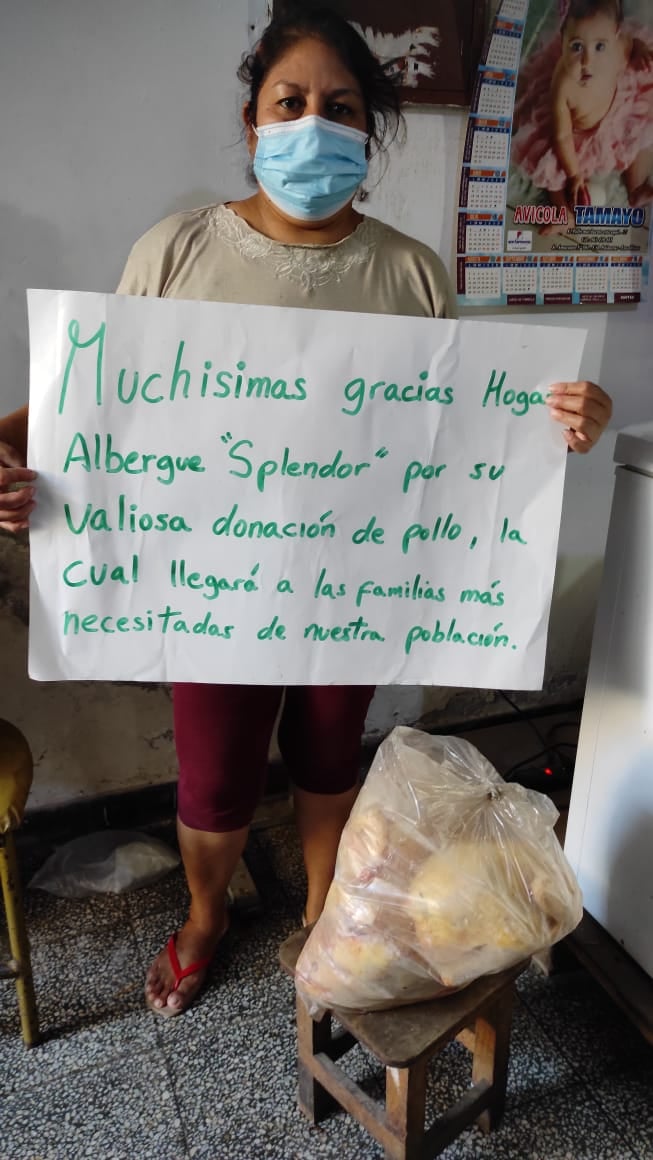 AVICOLA TAMAYO
Muchisimas gracias Hoga
Albergue "Splendor" por su
valiosa donación de pollo, la
cual llegará a las familias más
necesitadas de nuestra población.